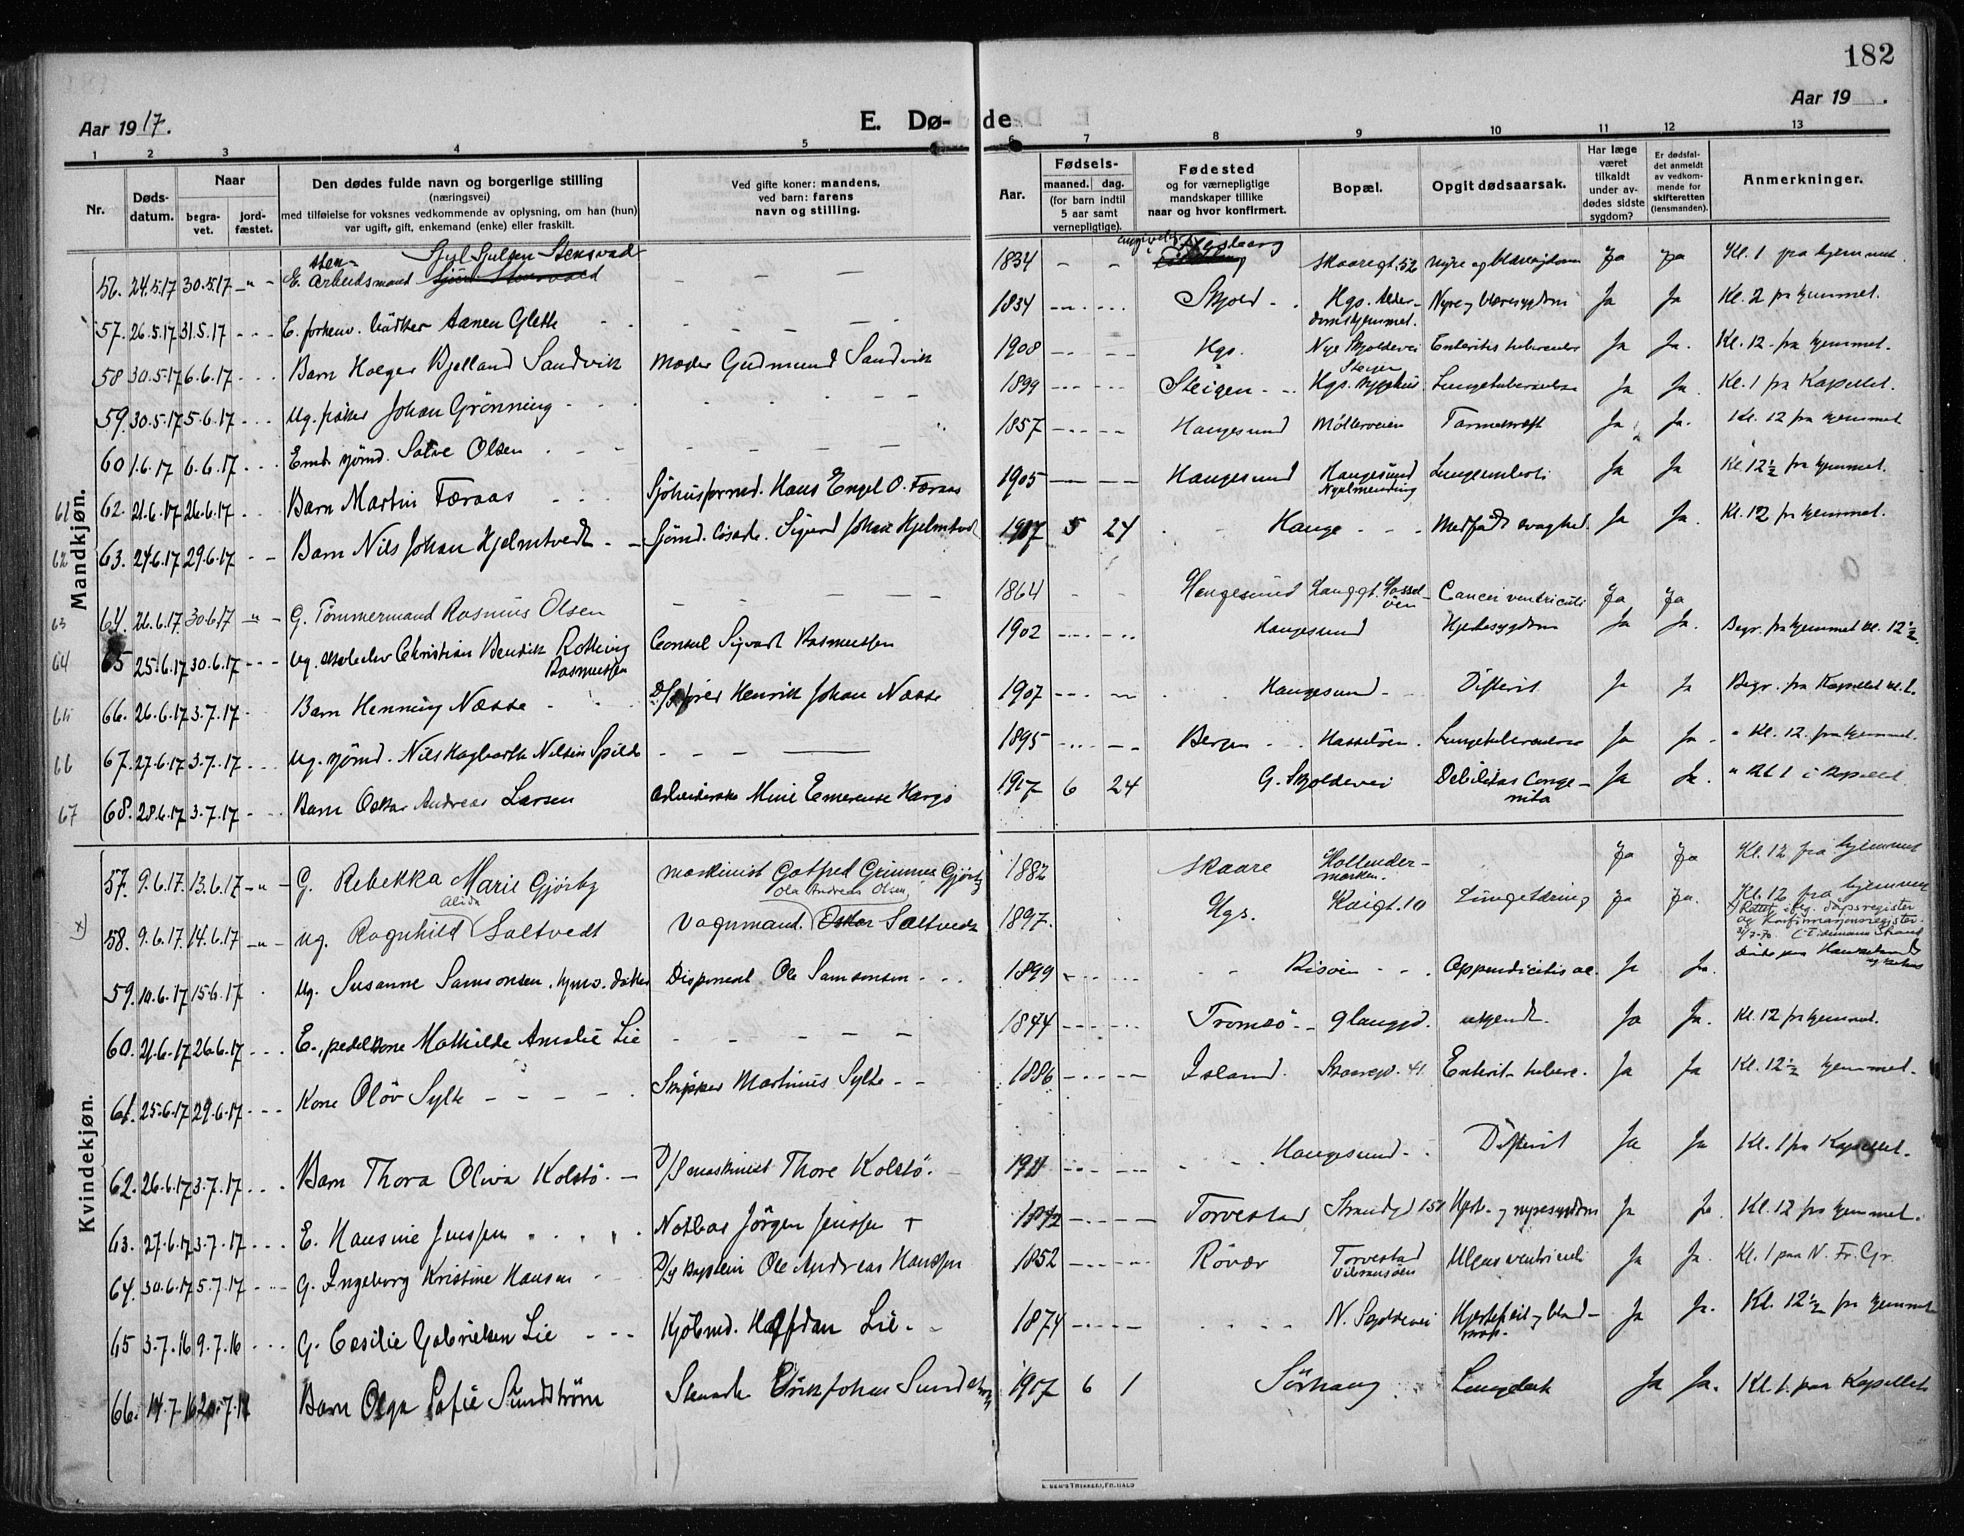 182
Aar 1917.
E. Dø-
de
Aar 19 .
1 2 3 4 5 6 7 8 9 10 11 12 13
Nr.
Døds-
datum.
Naar
begra-
vet.
jord-
fæstet.
Den dødes fulde navn og borgerlige stilling
(næringsvei)
med tilføielse for voksnes vedkommende av oplysning, om han (hun)
var ugift, gift, enkemand (enke) eller fraskilt.
Ved gifte koner: mandens,
ved barn: farens
navn og stilling.
Aar.
Fødsels-
maaned. dag.
(for barn indtil
5 aar samt
vernepligtige).
Fødested
og for værnepligtige
mandskaper tillike
naar og hvor konfirmert.
Bopæl.
Opgit dødsaarsak.
Har læge
været
tilkaldt
under av-
dødes sidste
sygdom?
Er dødsfal-
det anmeldt
av vedkom-
mende for
skifteretten
(lensmanden).
Anmerkninger.
Mandkjøn.
56. 24.5.17 30.5.17 E. Arbeidsmand 1834 Skaaregt. 52 Nyre og blæresygdom Ja Ja Kl. 1 fra hjemmet.
57. 26.5.17 31.5.17 E. forhenv. Bödker Aanen Glette 1834 Skjold Hgs. Alder-
domshjemmet. Nyre og blæresygdom Ja Ja Kl. 2 fra hjemmet.
58 30.5.17 6.6.17 Barn Holger Bjelland Sandvik Gudmund Sandvik 1908 Hgs. Nye Skjoldevei Enteritis tubercul. Ja Ja. Kl. 12 fra hjemmet.
59. 30.5.17 5.6.17 Ug. Johan Grönning 1899 Steigen Steigen
Hgs. sygehus Lungetuberculose Ja Ja. Kl. 1 fra Kapellet.
60 1.6.17 6.6.17 Enk. sjømd. Salve Olsen 1857 Haugesund Möllerveien Ja Ja. Kl. 12 fra hjemmet
61 62. 21.6.17 26.6.17 Barn Martin Færaas Sjöhusformd. Hans Engel O. Færaas 1905 Haugesund Haugesund Ja Ja Kl. 12½ fra hjemmet.
62 63. 24.6.17 29.6.17 Barn Nils Johan Hjelmtvedt Sjømd. Sigurd Johan Hjelmtvedt 1917 5 24 Hauge Medfødt svaghed. Ja Ja. Kl. 12 fra hjemmet.
63 64. 26.6.17 30.6.17 G. Tömmermand Rasmus Olsen 1864 Haugesund Hauggt. Hassel-
öen Cancer ventriculi Ja Ja
64 65 25.6.17 30.6.17 Ug. Christian Bendik
Rasmussen Consul Sigvart Rasmussen 1902 Haugesund Hjertesygdom Ja Ja. Begr. fra hjemmet kl. 12½
65 66. 26.6.17 3.7.17 Barn Henning Næsse D/S fører Henrik Johan Næsse 1907 Haugesund Difterit Ja Ja Begr. fra Kapellet kl. 1.
66 67. 27.6.17 3.7.17 Ug. sjømd. Nils Hagbarth Nilsen Spilde 1895 Bergen Hasselöen. Lungetuberculose Ja Ja. " Kl. 12. fra hjemmet.
67 68. 28.6.17 3.7.17 Barn Oskar Andreas Larsen Arbeiderske Mine Emerense 1917 6 24 G. Skjoldevei Debilitas Conge-
nita Ja Ja. " Kl. 1 i Kapellet
Kvindekjøn.
57. 9.6.17. 13.6.17 G. Rebekka Marie Gjörby maskinist Gotfred Grimnes Gjörby 1882 Skaare Hollender-
marken. Ja Ja Kl. 12 fra hjemmet
x) 58. 9.6.17. 14.6.17 Ug. Ragnhild Alida Saltvedt Vognmand Oskar Ola Andreas Olsen Saltvedt 1897. Hgs. Kaigt. 10 Ja Ja. Kl. 12 fra hjemmet
x) Rettet i flg. dåpsregister
og konfirmasjonsregister.
59. 10.6.17 15.6.17 Ug. Susanne Samsonsen, hjmv. datter Disponent Ole Samsonsen 1899 Risöen Appendicitis ac. Ja Ja.
60. 21.6.17 26.6.17 E., pedelkone Mathilde Amalie Lie 1844 Tromsö ukjendt. Ja Ja. Kl. 12 fra hjemmet.
61. 25.6.17 29.6.17 Kone Olöv Sylte Skipper Martinus Sylte 1886 Island. Skaaregt. 41 Enterit tuberc. Ja Ja Kl. 12½ hjemmet.
62. 26.6.17 3.7.17 Barn Thora Oliva Kolstö. D/S maskinist Thore Kolstö. 1911 Haugesund Difterit Ja Ja Kl. 1 fra Kapellet.
63. 27.6.17 3.7.17 E. Hansine Jenssen Notbas Jörgen Jenssen + Torvestad Strandgt 151 Hjerte- og nyresygdom Ja Ja. Kl. 12 fra hjemmet.
64. 30.6.17 5.7.17 G. Ingeborg Kristine Hansen Ole Andreas Hanssen 1852 Rövær Torvestad
Vibransöen Ulcus ventriculi Ja Ja. Kl. 1 paa N. Fr. Gr.
65 3.7.16 9.7.16 G. Cesilie Gabrielsen Lie Kjöbmd. Halfdan Lie. 1874 N. Skjoldevei Hjertefeil og blod-
prop. Ja Ja. Kl. 12½ fra hjemmet
66. 14.7.16 20.7.17 Barn Olga Sofie Sundström Erik Johan Sundström 1917 6 1 Sörhaug Ja Ja. Kl. 1. paa Kapellet